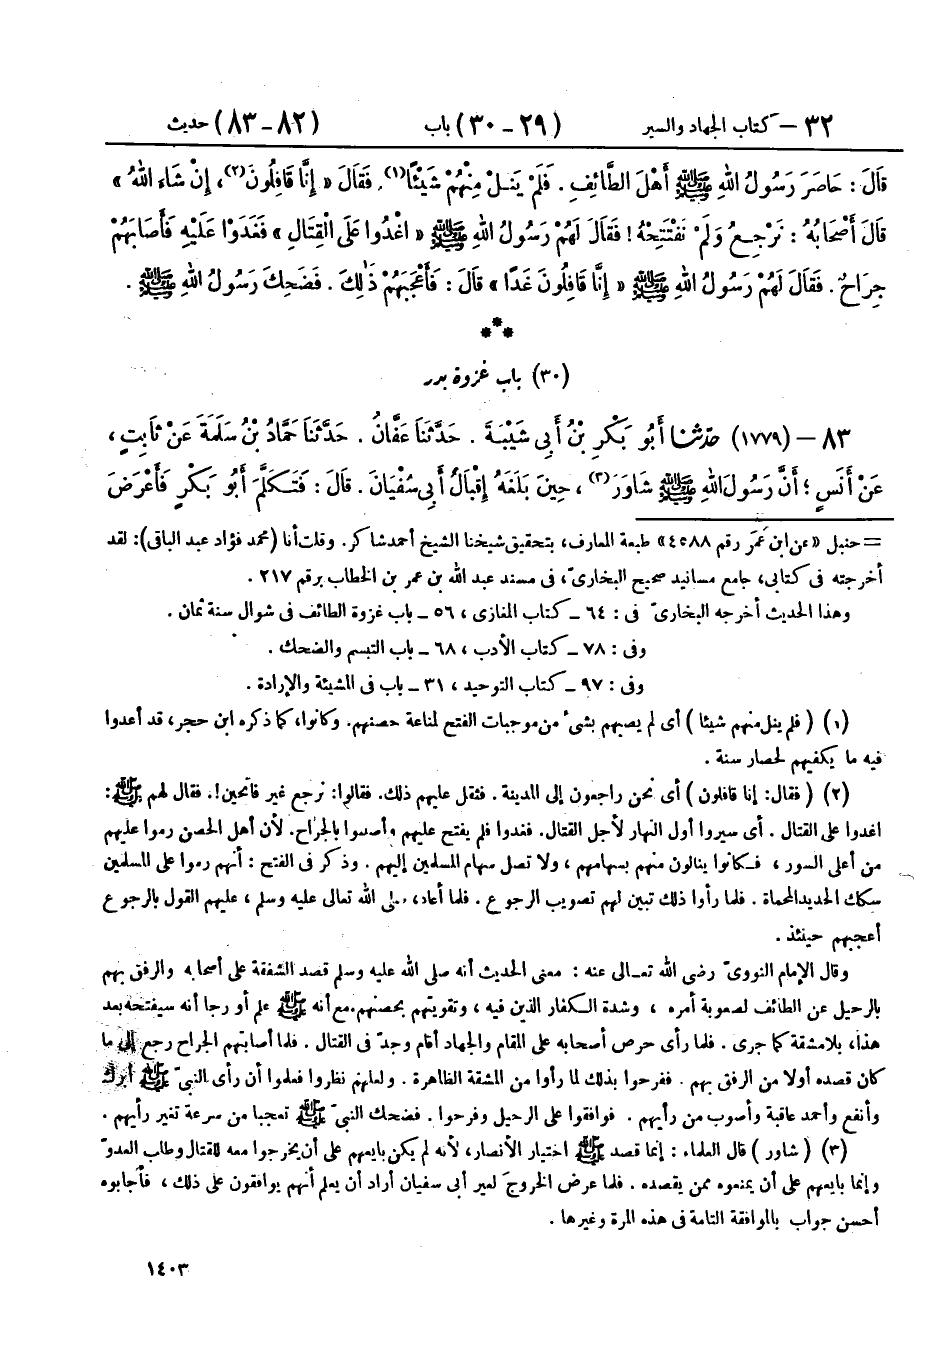 ٣٢ – كتاب الجهاد والسير (٢٩ – ٣٠) باب (٨٢ – ٨٣) حديث
قَالَ : حَاصَرَ رَسُولُ اللهِ ﷺ أَهْلَ الطَّائِفِ . فَلَمْ يَنَلْ مِنْهُمْ شَيْئًا(١). فَقَالَ « إِنَّا قَافِلُونَ(٢)، إِنْ شَاءَ اللهُ »
قَالَ أَصْحَابُهُ : نَرْجِعُ وَلَمْ نَفْتَتِحْهُ ! فَقَالَ لَهُمْ رَسُولُ اللهِ ﷺ « اغْدُوا عَلَى الْقِتَالِ » فَغَدَوْا عَلَيْهِ فَأَصَابَهُمْ
جِرَاحٌ . فَقَالَ لَهُمْ رَسُولُ اللهِ ﷺ « إِنَّا قَافِلُونَ غَدًا » قَالَ : فَأَعْجَبَهُمْ ذَٰلِكَ . فَضَحِكَ رَسُولُ اللهِ ﷺ .
***
(٣٠) باب غزوة بدر
٨٣ – (١٧٧٩) حدّثنا أَبُو بَكْرِ بْنُ أَبِي شَيْبَةَ . حَدَّثَنَا عَفَّانُ . حَدَّثَنَا حَمَّادُ بْنُ سَلَمَةَ عَنْ ثَابِتٍ ،
عَنْ أَنَسٍ ؛ أَنَّ رَسُولَ اللهِ ﷺ شَاوَرَ(٣) ، حِينَ بَلَغَهُ إِقْبَالُ أَبِي سُفْيَانَ . قَالَ : فَتَكَلَّمَ أَبُو بَكْرٍ فَأَعْرَضَ
= حنبل « عن ابن عُمَر رقم ٤٥٨٨ » طبعة المعارف، بتحقيق شيخنا الشيخ أحمد شاكر. وقلت أنا (محمد فؤاد عبد الباقى): لقد
أخرجته فى كتابى، جامع مسانيد صحيح البخارىّ، فى مسند عبد الله بن عمر بن الخطاب برقم ٢١٧ .
وهذا الحديث أخرجه البخارىّ فى : ٦٤ ـ كتاب المغازى ، ٥٦ ـ باب غزوة الطائف فى شوال سنة ثمان .
وفى : ٧٨ ـ كتاب الأدب ، ٦٨ ـ باب التبسم والضحك .
وفى : ٩٧ ـ كتاب التوحيد ، ٣١ ـ باب فى المشيئة والإرادة .
(١) ( فلم ينل منهم شيئا ) أى لم يصبهم بشىء من موجبات الفتح لمناعة حصنهم. وكانوا، كما ذكره ابن حجر، قد أعدوا
فيه ما يكفيهم لحصار سنة .
(٢) ( فقال: إنا قافلون ) أى نحن راجعون إلى المدينة . فثقل عليهم ذلك. فقالوا: نرجع غير فاتحين!. فقال لهم ﷺ :
اغدوا على القتال . أى سيروا أول النهار لأجل القتال. فغدوا فلم يفتح عليهم وأصيبوا بالجراح. لأن أهل الحصن رموا عليهم
من أعلى السور ، فكانوا ينالون منهم بسهامهم ، ولا تصل سهام المسلمين إليهم . وذكر فى الفتح : أنهم رموا على المسلمين
سكك الحديد المحماة . فلما رأوا ذلك تبين لهم تصويب الرجوع . فلما أعاد، صلى الله تعالى عليه وسلم ، عليهم القول بالرجوع
أعجبهم حينئذ .
وقال الإمام النووىّ رضى الله تعـالى عنه : معنى الحديث أنه صلى الله عليه وسلم قصد الشفقة على أصحابه والرفق بهم
بالرحيل عن الطائف لصعوبة أمره ، وشدة الكفار الذين فيه ، وتقويتهم بحصنهم. مع أنه ﷺ علم أو رجا أنه سيفتحه بعد
هذا، بلا مشقة كما جرى . فلما رأى حرص أصحابه على المقام والجهاد أقام وجدّ فى القتال . فلما أصابتهم الجراح رجع إلى ما
كان قصده أولا من الرفق بهم . ففرحوا بذلك لما رأوا من المشقة الظاهرة . ولعلهم نظروا فعلموا أن رأى النبىّ ﷺ أبرك
وأنفع وأحمد عاقبة وأصوب من رأيهم . فوافقوا على الرحيل وفرحوا . فضحك النبىّ ﷺ تعجبا من سرعة تغير رأيهم .
(٣) ( شاور ) قال العلماء : إنما قصد ﷺ اختبار الأنصار، لأنه لم يكن بايعهم على أن يخرجوا معه للقتال وطلب العدوّ
وإنما بايعهم على أن يمنعوه ممن يقصده . فلما عرض الخروج لعير أبى سفيان أراد أن يعلم أنهم يوافقون على ذلك ، فأجابوه
أحسن جواب بالموافقة التامة فى هذه المرة وغيرها .
١٤٠٣